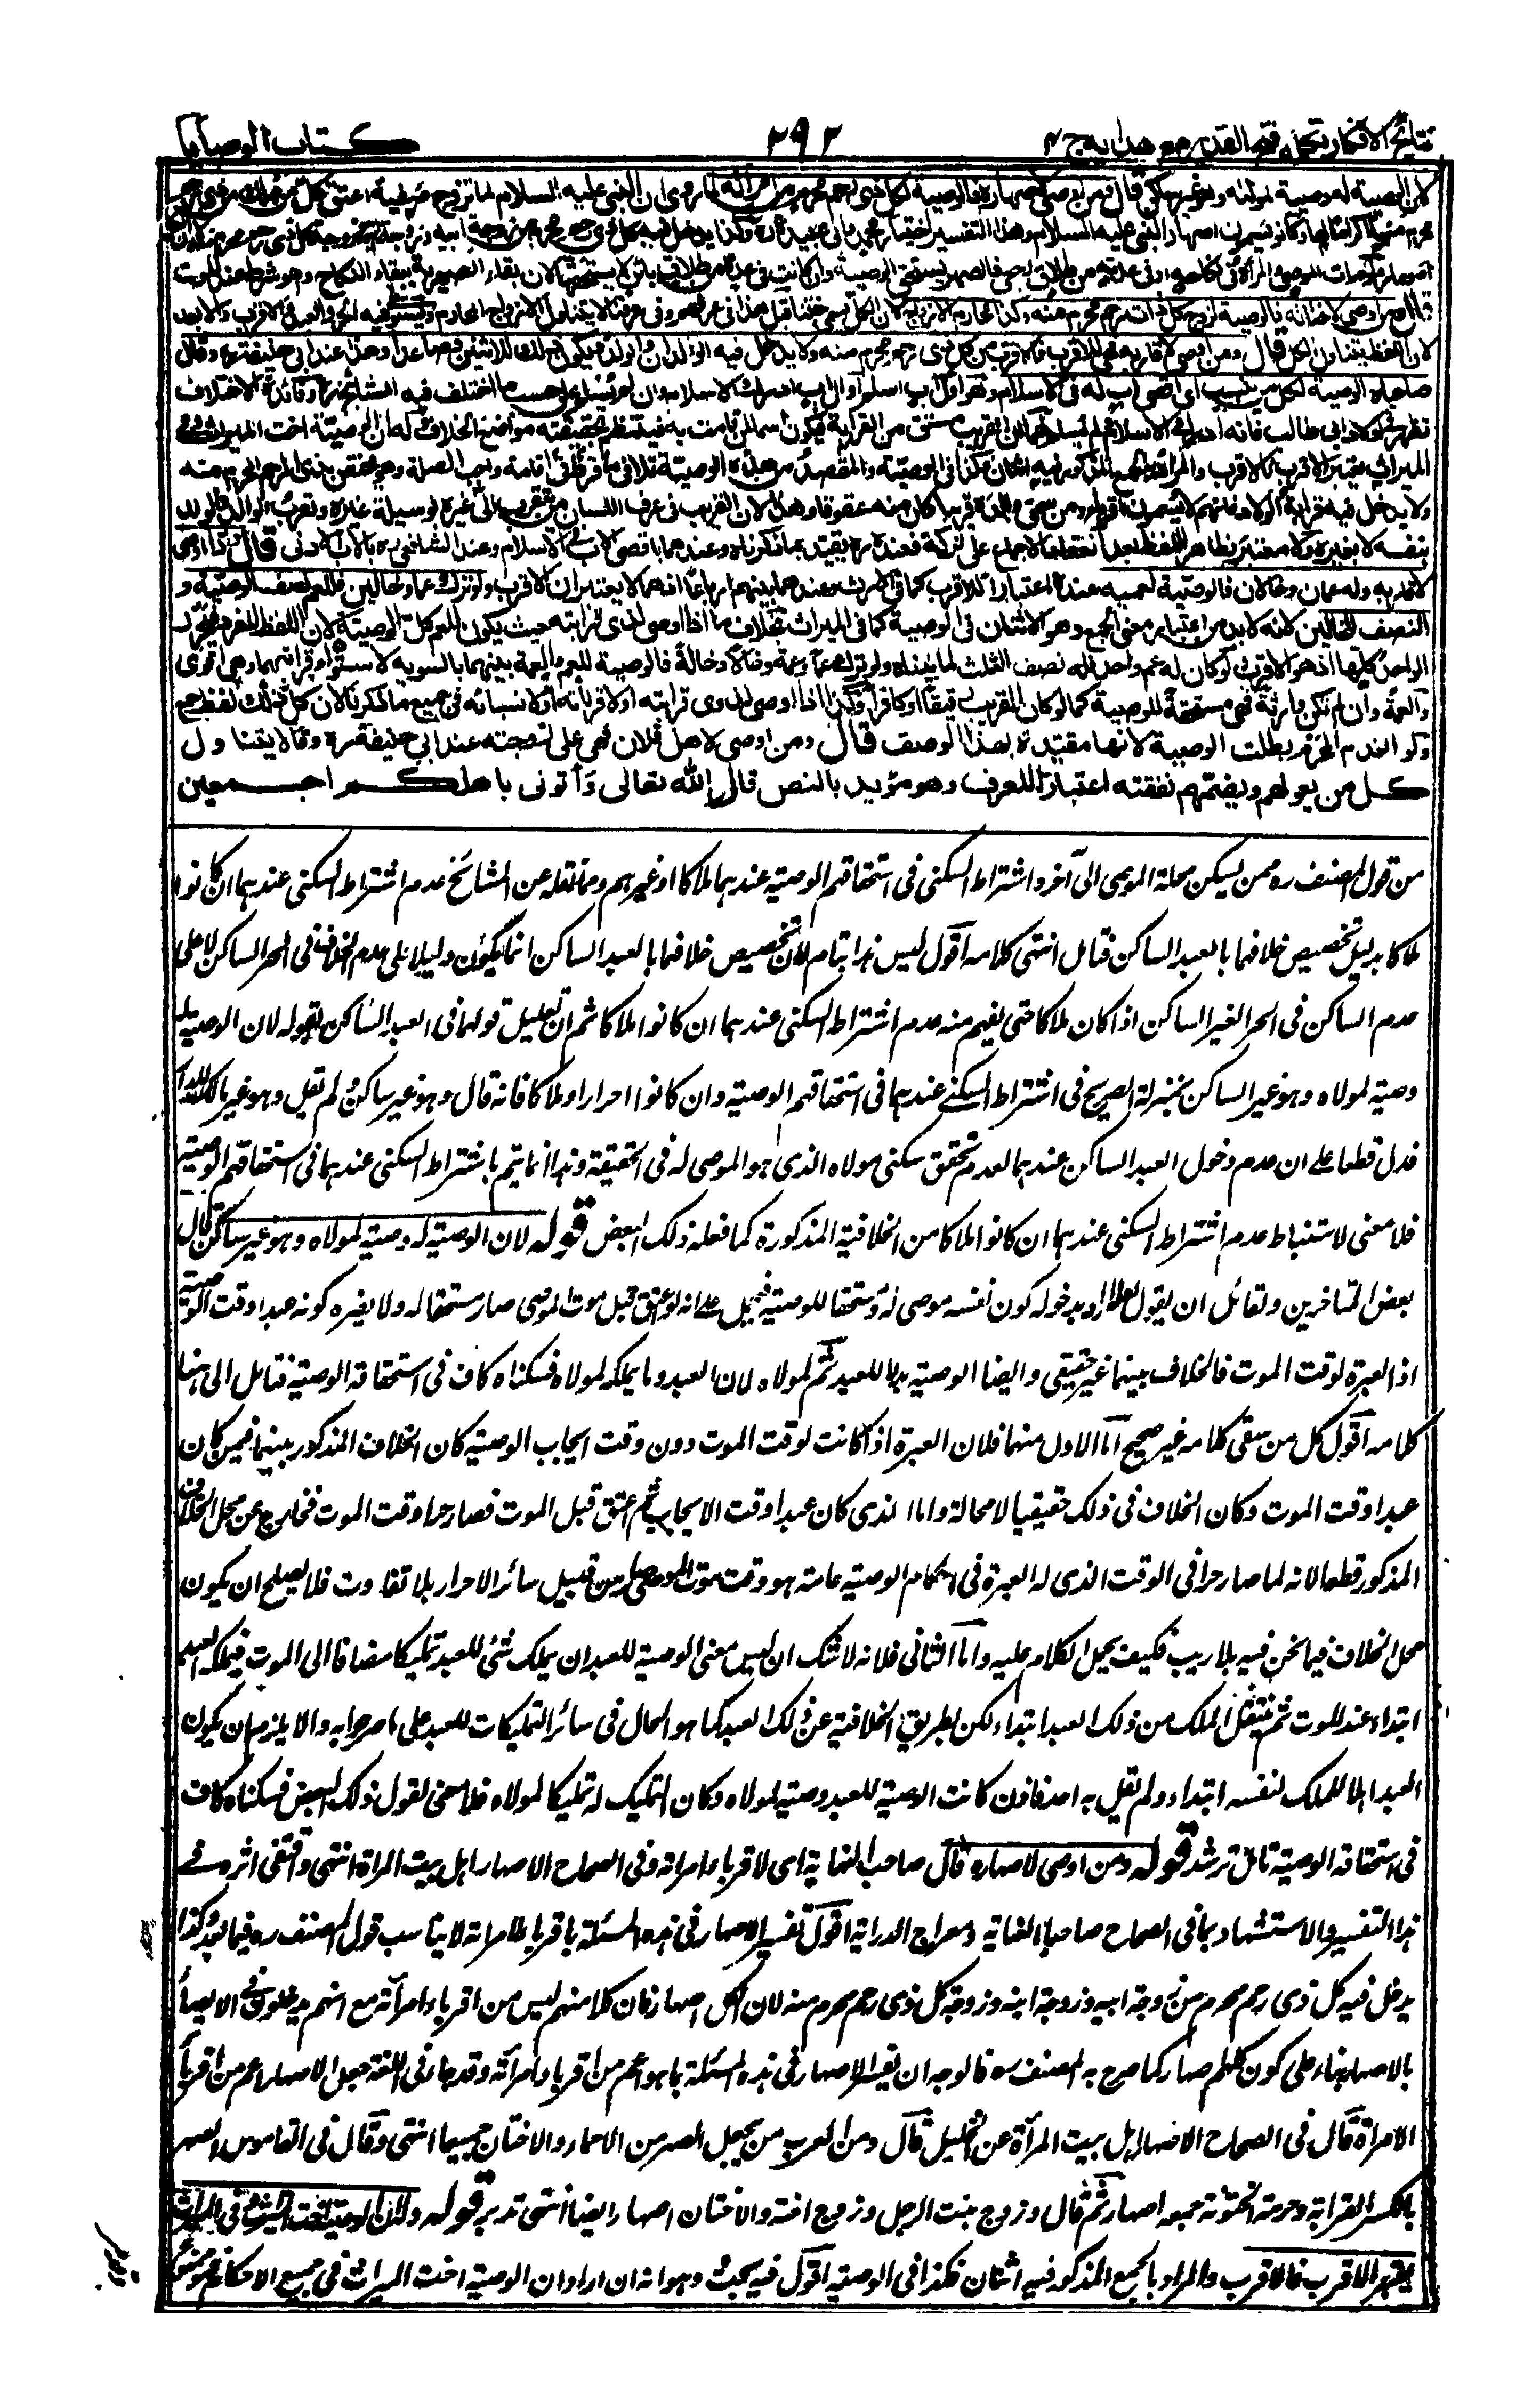 نتائج الافكار تكملة فتح القدير مع هدايه ج ٤
٢٩٢
كتاب الوصايا
لان الوصية له وصية لمولاه وهو غير ساكن قال ومن اوصى لاصهاره فالوصية لكل ذى رحم محرم من امرأته لما روى ان النبى عليه السلام لما تزوج صفية اعتق كل من ملك من ذى رحم
محرم منها اكراما لها وكانوا يسمون اصهار النبى عليه السلام وهذا التفسير اختيار محمد وابى عبيدة ره وكذا يدخل فيه كل ذى رحم محرم من زوجة ابيه وزوجة ابنه وزوجة كل ذى رحم محرم منه لان الكل
اصهار ولو مات الموصى والمرأة فى نكاحه او فى عدته من طلاق رجعى فالصهر يستحق الوصية وان كانت فى عدة من طلاق بائن لا يستحقها لان بقاء الصهرية ببقاء النكاح وهو شرط عند الموت
قال ومن اوصى لاختانه فالوصية لزوج كل ذات رحم محرم منه وكذا محارم الازواج لان الكل يسمى ختنا قيل هذا فى عرفهم وفى عرفنا لا يتناول الا ازواج المحارم ويستوى فيه الحر والعبد والاقرب والابعد
لان اللفظ يتناول الكل قال ومن اوصى لاقاربه فهى للاقرب فالاقرب من كل ذى رحم محرم منه ولا يدخل فيه الوالدان والولد ويكون ذلك للاثنين فصاعدا وهذا عند ابى حنيفة ره وقال
صاحباه الوصية لكل من ينسب الى اقصى اب له فى الاسلام وهو اول اب اسلم او اول اب ادرك الاسلام وان لم يسلم على حسب ما اختلف فيه المشائخ ره وفائدة الاختلاف
تظهر فى اولاد ابى طالب فانه ادرك الاسلام ولم يسلم لهما ان القريب مشتق من القرابة فيكون اسما لمن قامت به فينتظم بحقيقته مواضع الخلاف وله ان الوصية اخت الميراث وفى
الميراث يعتبر الاقرب فالاقرب والمراد بالجمع المذكور فيه اثنان فكذا فى الوصية والمقصد من هذه الوصية تلافى ما فرط فى اقامة واجب الصلة وهو يختص بذى الرحم المحرم منه
ولا يدخل فيه قرابة الولاد فانهم لا يسمون اقرباء ومن سمى والده قريبا كان منه عقوقا وهذا لان القريب فى عرف اللسان من يتقرب الى غيره بوسيلة غيره وتقرب الوالد والولد
بنفسه لا بغيره ولا معتبر بظاهر اللفظ بعد انعقاد الاجماع على تركه فعنده ره يقيد بما ذكرناه وعندهما باقصى الاب فى الاسلام وعند الشافعى ره بالاب الادنى قال واذا اوصى
لاقاربه وله عمان وخالان فالوصية لعميه عنده اعتبارا للاقرب كما فى الارث وعندهما بينهم ارباعا اذ هما لا يعتبران الاقرب ولو ترك عما وخالين فللعم نصف الوصية و
النصف للخالين لانه لابد من اعتبار معنى الجمع وهو الاثنان فى الوصية كما فى الميراث بخلاف ما اذا اوصى لذى قرابته حيث يكون للعم كل الوصية لان اللفظ للفرد فيحرز
الواحد كلها اذ هو الاقرب ولو كان له عم واحد فله نصف الثلث لما بيناه ولو ترك عما وعمة وخالا وخالة فالوصية للعم والعمة بينهما بالسوية لاستواء قرابتهما وهى اقوى
والعمة وان لم تكن وارثة فهى مستحقة للوصية كما لو كان القريب رقيقا او كافرا وكذا اذا اوصى لذوى قرابته او لاقربائه او لانسبائه فى جميع ما ذكرنا لان كل ذلك لفظ جمع
ولو انعدم المحرم بطلت الوصية لانها مقيدة بهذا الوصف قال ومن اوصى لاهل فلان فهى على زوجته عند ابى حنيفة ره وقالا يتناول
كل من يعولهم ويضمهم نفقته اعتبارا للعرف وهو مؤيد بالنص قال الله تعالى وأتونى باهلكم اجمعين
من قول المصنف ره ممن يسكن محلة الموصى الى آخره اشتراط السكنى فى استحقاقهم الوصية عندهما ملاكا او غيرهم ومما نقله عن المشائخ عدم اشتراط السكنى عندهما ان كانوا
ملاكا بدليل تخصيص خلافهما بالعبد الساكن فتامل انتهى كلامه اقول ليس هذا بتام لان تخصيص خلافهما بالعبد الساكن انما يكون دليلا على عدم الخلاف فى الحر الساكن لا على
عدم الساكن فى الحر الغير الساكن اذا كان ملاكا حتى يفهم منه عدم اشتراط السكنى عندهما ان كانوا ملاكا ثم ان تعليل قولهما فى العبد الساكن بقوله لان الوصية له
وصية لمولاه وهو غير الساكن بمنزلة الصريح فى اشتراط السكنى عندهما فى استحقاقهم الوصية وان كانوا احرارا وملاكا فانه قال وهو غير ساكن ولم تقل وهو غير مالك للدار
فدل قطعا على ان عدم دخول العبد الساكن عندهما لعدم تحقق سكنى مولاه الذى هو الموصى له فى الحقيقة وهذا انما يتم باشتراط السكنى عندهما فى استحقاقهم الوصية
فلا معنى لاستنباط عدم اشتراط السكنى عندهما ان كانوا ملاكا من الخلافية المذكورة كما فعله ذلك البعض قوله لان الوصية له وصية لمولاه وهو غير ساكن قال
بعض المتاخرين ولقائل ان يقول لعله اراد بدخوله كون نفسه موصى له ومستحقا للوصية فيحمل على انه لو اعتق قبل موت الموصى صار مستحقا له ولا يضره كونه عبدا وقت الوصية
اذ العبرة لوقت الموت فالخلاف بينهما غير حقيقى وايضا الوصية اولا للعبد ثم لمولاه لان العبد وما يملكه لمولاه فسكناه كاف فى استحقاقه الوصية فتامل الى هنا
كلامه اقول كل من شقى كلامه غير صحيح اما الاول منهما فلان العبرة اذا كانت لوقت الموت دون وقت ايجاب الوصية كان الخلاف المذكور بينهما فيمن كان
عبدا وقت الموت وكان الخلاف فى ذلك حقيقيا لا محالة واما الذى كان عبدا وقت الايجاب ثم اعتق قبل الموت فصار حرا وقت الموت فخارج عن محل الخلاف
المذكور قطعا لانه لما صار حرا فى الوقت الذى له العبرة فى احكام الوصية عامة هو وقت موت الموصى صار من قبيل سائر الاحرار بلا تفاوت فلا يصلح ان يكون
محل الخلاف فيما نحن فيه بلا ريب فكيف يحمل الكلام عليه واما الثانى فلانه لا شك ان ليس معنى الوصية للعبد ان يملك شئ للعبد تمليكا مضافا الى الموت فيملكه العبد
ابتداء عند الموت ثم ينتقل الملك من ذلك العبد ابتداء لكن بطريق الخلافية عن ذلك العبد كما هو الحال فى سائر التمليكات للعبد على ما صرحوا به والا يلزم ان يكون
العبد اهلا للملك لنفسه ابتداء ولم يقل به احد فاذن كانت الوصية للعبد وصية لمولاه وكان التمليك له تمليكا لمولاه فلا معنى لقول ذلك البعض فسكناه كاف
فى استحقاقه الوصية تامل ترشد قوله ومن اوصى لاصهاره قال صاحب النهاية اى لاقرباء امراته وفى الصحاح الاصهار اهل بيت المراة انتهى واقتفى اثره فى
هذا التفسير والاستشهاد بما فى الصحاح صاحبا الغاية ومعراج الدراية اقول تفسير الاصهار فى هذه المسئلة باقرباء امراته لا يناسب قول المصنف ره فيما بعد وكذا
يدخل فيه كل ذى رحم محرم من زوجة ابيه وزوجة ابنه وزوجة كل ذى رحم محرم منه لان الكل اصهار فان كلا منهم ليس من اقرباء امرأته مع انهم يدخلون فى الايصاء
بالاصهار بناء على كون كلهم اصهارا كما صرح به المصنف ره فالوجه ان يفسر الاصهار فى هذه المسئلة بما هو اعم من اقرباء امرأته وقد جاء فى اللغة جعل الاصهار اعم من اقرباء
الامرأة قال فى الصحاح الاصهار اهل بيت المرأة عن الخليل قال ومن العرب من يجعل الصهر من الاحماء والاختان جميعا انتهى وقال فى القاموس الصهر
بالكسر القرابة وحرمة الختونة جمعه اصهار ثم قال وزوج بنت الرجل وزوج اخته والاختان اصهار ايضا انتهى تدبر قوله وله ان الوصية اخت الميراث وفى الميراث
يعتبر الاقرب فالاقرب والمراد بالجمع المذكور فيه اثنان فكذا فى الوصية اقول فيه بحث وهو انه ان اراد ان الوصية اخت الميراث فى جميع الاحكام فهو ممنوع